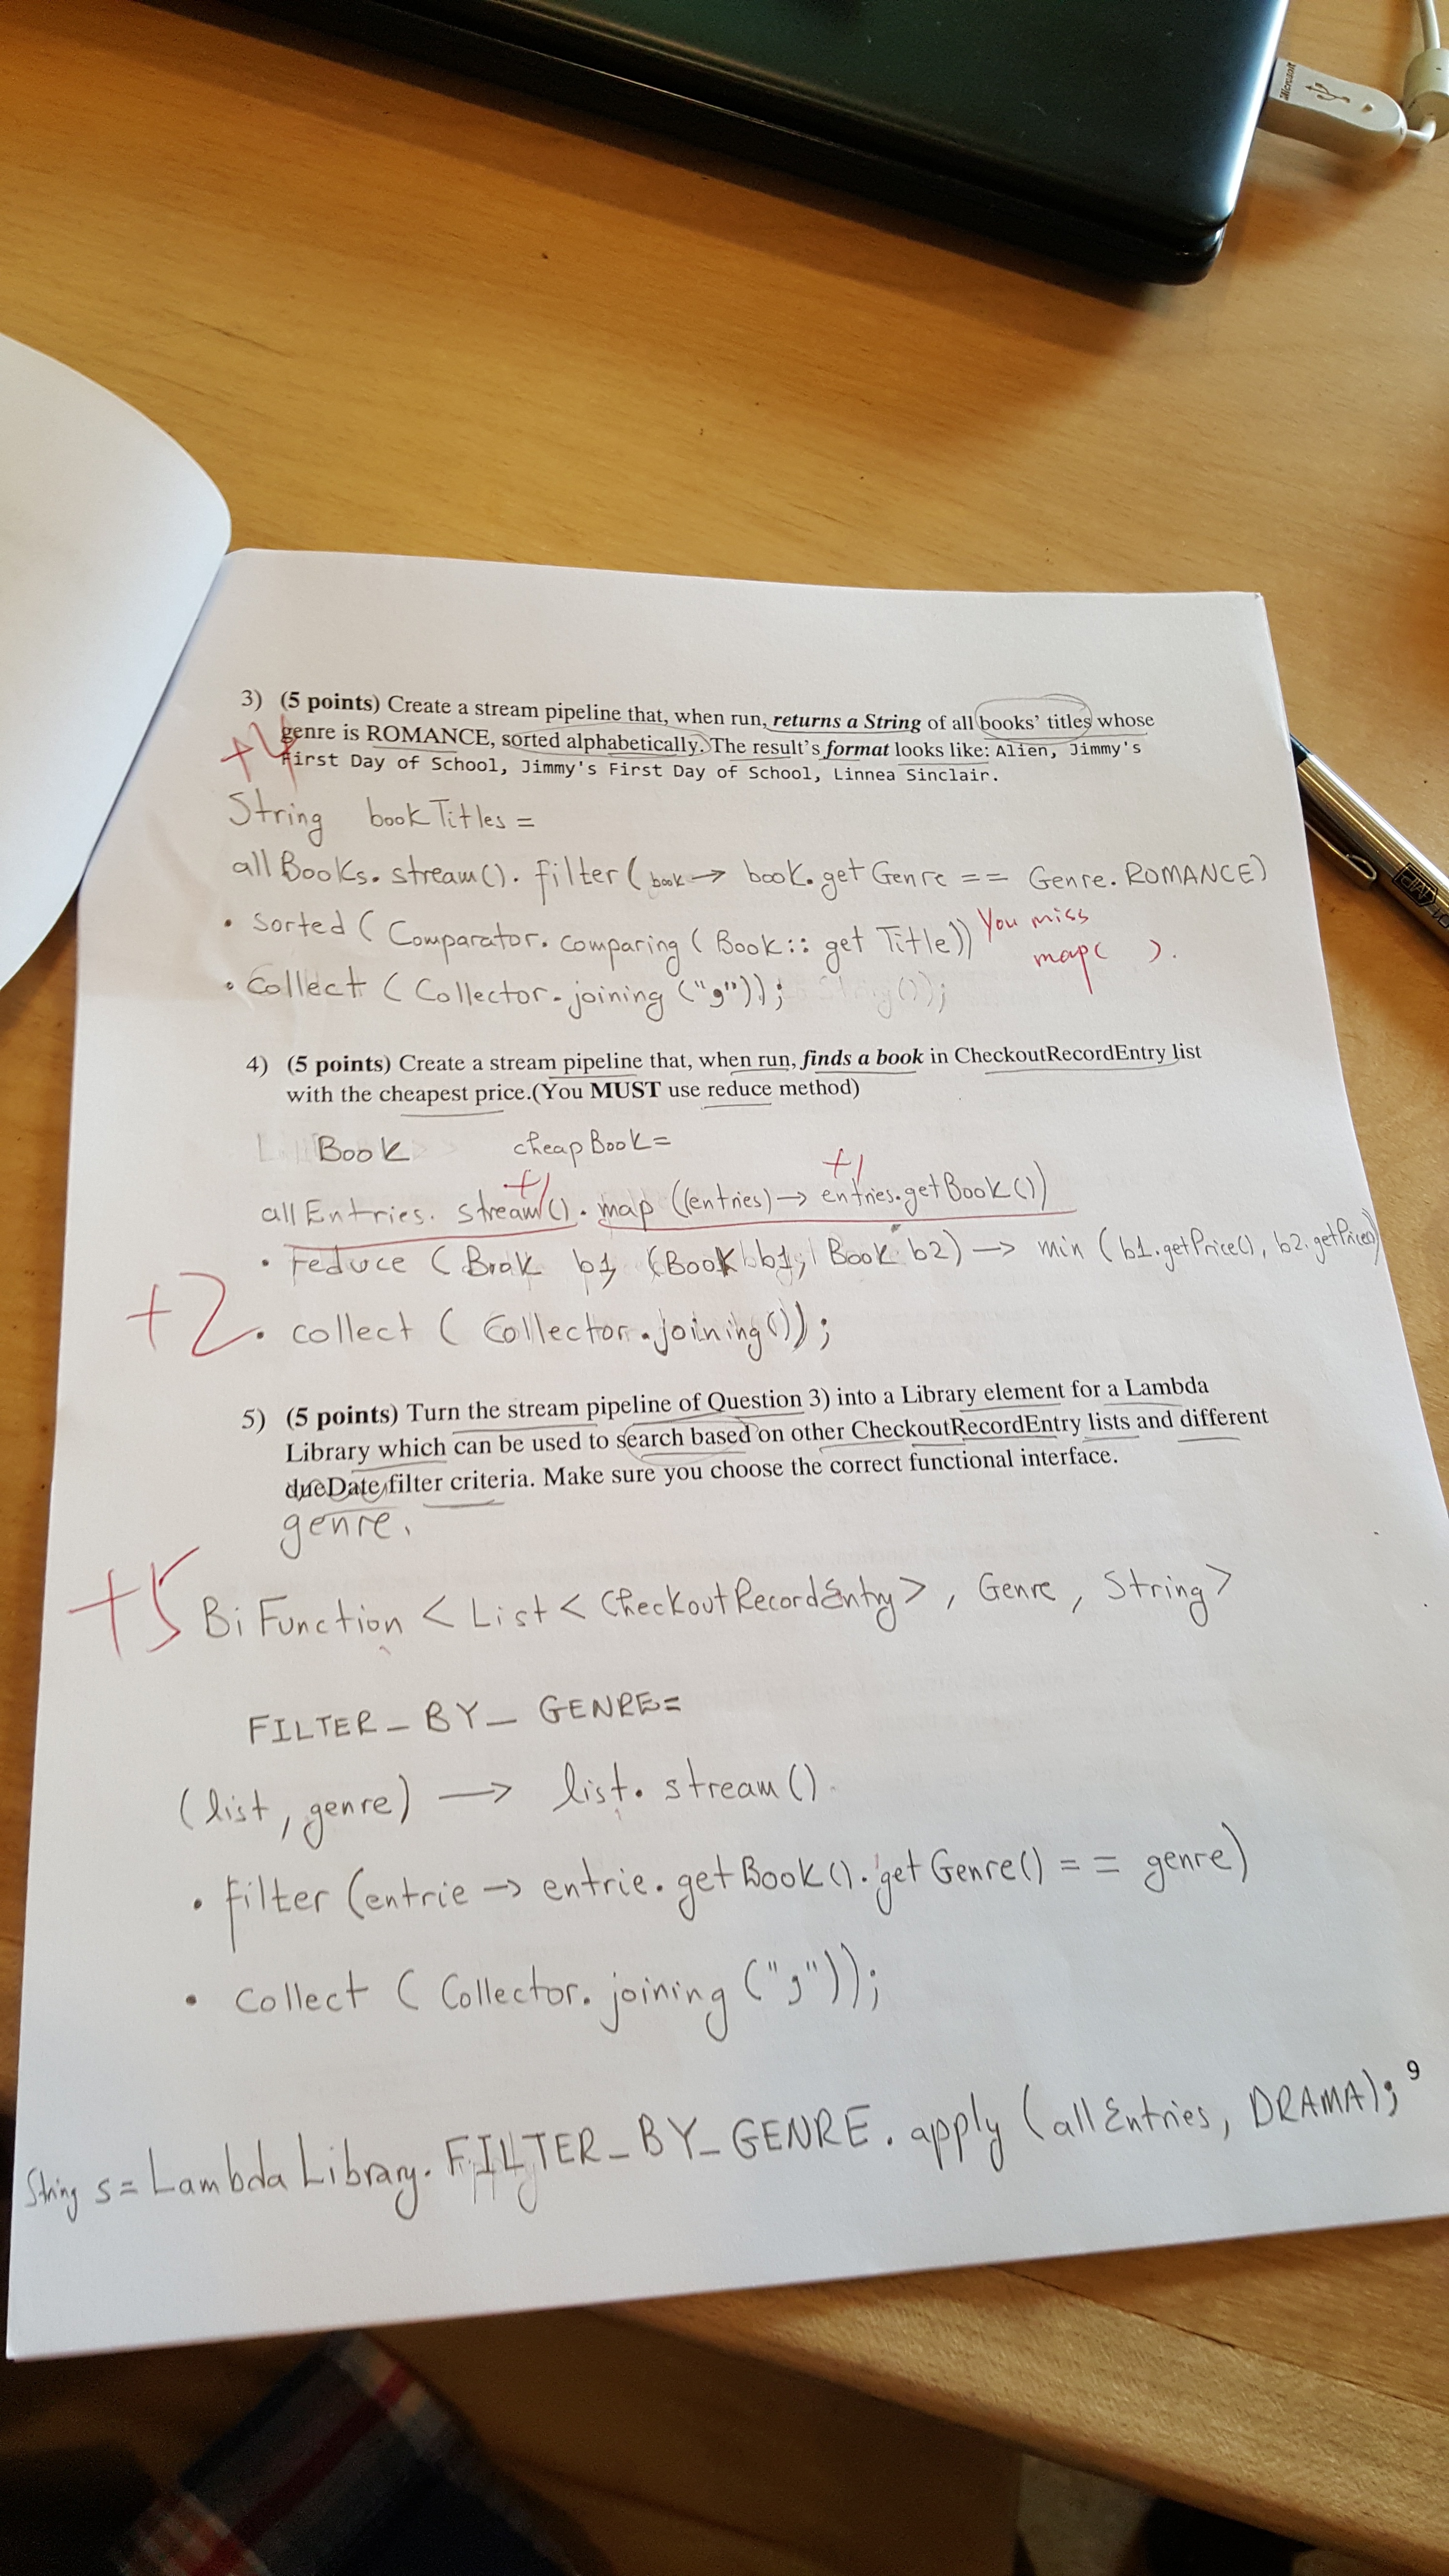 Microsoft
3) (5 points) Create a stream pipeline that, when run, returns a String of all books' titles whose
genre is ROMANCE, sorted alphabetically. The result's format looks like: Alien, Jimmy's
First Day of School, Jimmy's First Day of School, Linnea Sinclair.
+4
String bookTitles =
allBooks. stream(). filter (book → book.getGenre == Genre.ROMANCE)
. sorted (Comparator. comparing (Book:: get Title)) You miss
map( ).
. collect (Collector. joining (","));
4) (5 points) Create a stream pipeline that, when run, finds a book in CheckoutRecordEntry list
with the cheapest price.(You MUST use reduce method)
Book cheapBook =
+1 +1
allEntries. stream(). map ((entries) → entries.getBook())
. reduce (Book b1, (Book b1, Book b2) → min (b1.getPrice(), b2.getPrice())
+2
. collect ( Collector. joining());
5) (5 points) Turn the stream pipeline of Question 3) into a Library element for a Lambda
Library which can be used to search based on other CheckoutRecordEntry lists and different
dueDate filter criteria. Make sure you choose the correct functional interface.
genre.
+5
BiFunction < List < CheckoutRecordEntry> , Genre, String>
FILTER_BY_GENRE=
(list, genre) → list. stream().
. filter (entrie → entrie. getBook(). getGenre() == genre)
. collect ( Collector. joining (","));
9
String s = LambdaLibrary. FILTER_BY_GENRE. apply (allEntries, DRAMA);